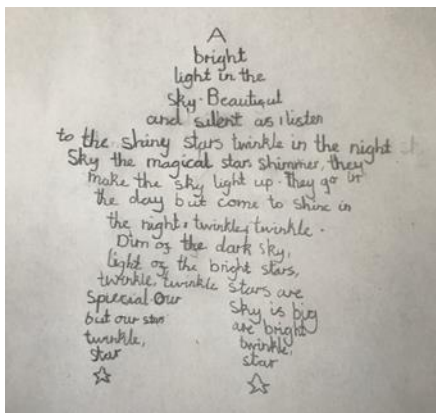 A
bright
light in the
sky. Beautiful
and silent as i listen
to the shiny stars twinkle in the night
sky the magical stars shimmer, they
make the sky light up. They go in
the day but come to shine in
the night, twinkle, twinkle.
Dim of the dark sky,
light of the bright stars,
twinkle, twinkle stars are
special. Our sky is big
but our stars are bright
twinkle, twinkle,
star star